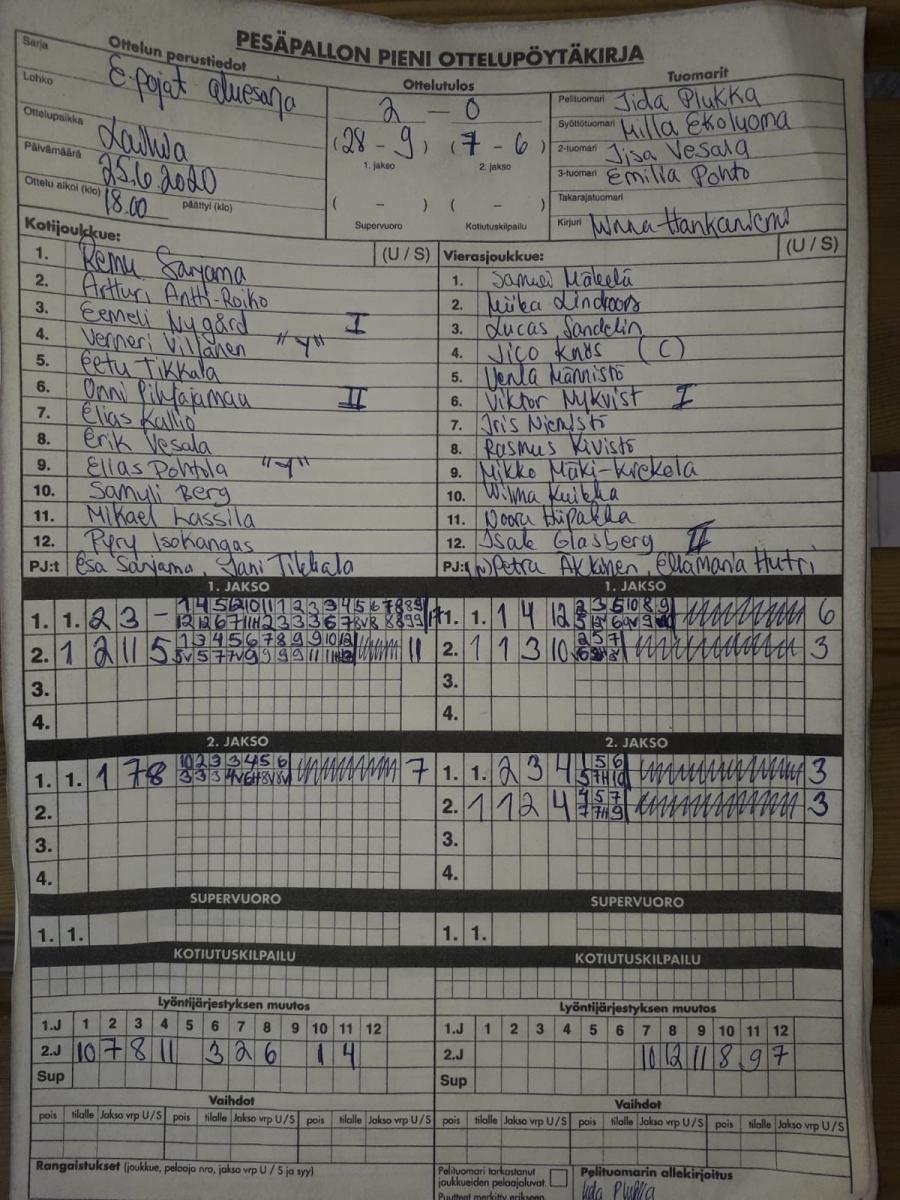 PESÄPALLON PIENI OTTELUPÖYTÄKIRJA
Sarja Ottelun perustiedot
E-pojat aluesarja
Lohko
Ottelupaikka
Laihia
Päivämäärä
25.6.2020
Ottelu alkoi (klo) 18.00 päättyi (klo)
Ottelutulos
2 — 0
(28 - 9) (7 - 6)
1. jakso 2. jakso
( - ) ( - )
Supervuoro Kotiutuskilpailu
Tuomarit
Pelituomari Iida Plukka
Syöttötuomari Milla Ekoluoma
2-tuomari Iisa Vesala
3-tuomari Emilia Pohto
Takarajatuomari
Kirjuri Minna Hankaniemi
Kotijoukkue: (U / S)
1. Remu Sarjama
2. Artturi Antti-Roiko
3. Eemeli Nygård I
4. Verneri Viljanen "Y"
5. Eetu Tikkala
6. Onni Pihlajamaa II
7. Elias Kallio
8. Erik Vesala
9. Elias Pohtola "Y"
10. Samuli Berg
11. Mikael Lassila
12. Pyry Isokangas
PJ:t Esa Sarjama, Jani Tikkala
Vierasjoukkue: (U / S)
1. Samuel Mäkelä
2. Miika Lindroos
3. Lucas Sandelin
4. Jico Knös (C)
5. Venla Männistö
6. Viktor Nykvist I
7. Iris Niemistö
8. Rasmus Kivistö
9. Mikko Mäki-Krekola
10. Wilma Kuikka
11. Noora Hiipakka
12. Isak Glasberg II
PJ:t Petra Äkkinen, EllaMaria Hutri
1. JAKSO
1. 1. 2 3 -
2. 1 2 11 5 11
3.
4.
1. JAKSO
1. 1. 1 4 12 6
2. 1 1 3 10 3
3.
4.
2. JAKSO
1. 1. 1 7 8 7
2.
3.
4.
2. JAKSO
1. 1. 2 3 4 3
2. 1 1 2 4 3
3.
4.
SUPERVUORO
1. 1.
SUPERVUORO
1. 1.
KOTIUTUSKILPAILU
KOTIUTUSKILPAILU
Lyöntijärjestyksen muutos
1.J 1 2 3 4 5 6 7 8 9 10 11 12
2.J 10 7 8 11 3 2 6 1 4
Sup
Lyöntijärjestyksen muutos
1.J 1 2 3 4 5 6 7 8 9 10 11 12
2.J 10 12 11 8 9 7
Sup
Vaihdot
pois tilalle Jakso vrp U / S pois tilalle Jakso vrp U / S pois tilalle Jakso vrp U / S
Vaihdot
pois tilalle Jakso vrp U / S pois tilalle Jakso vrp U / S pois tilalle Jakso vrp U / S
Rangaistukset (joukkue, pelaaja nro, jakso vrp U / S ja syy)
Pelituomari tarkastanut
joukkueiden pelaajaluvat.
Puutteet merkitty erikseen
Pelituomarin allekirjoitus
Iida Plukka